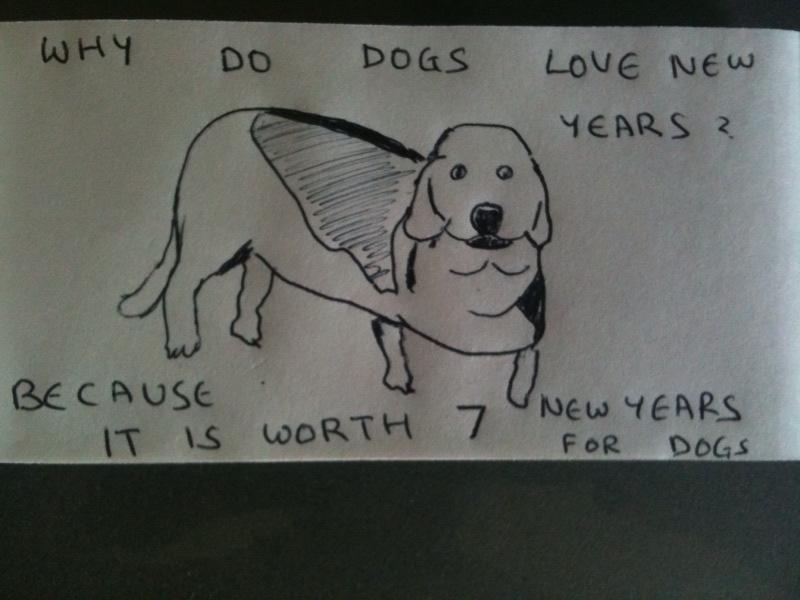 WHY DO DOGS LOVE NEW
YEARS ?
BECAUSE
IT IS WORTH 7 NEW YEARS
FOR DOGS